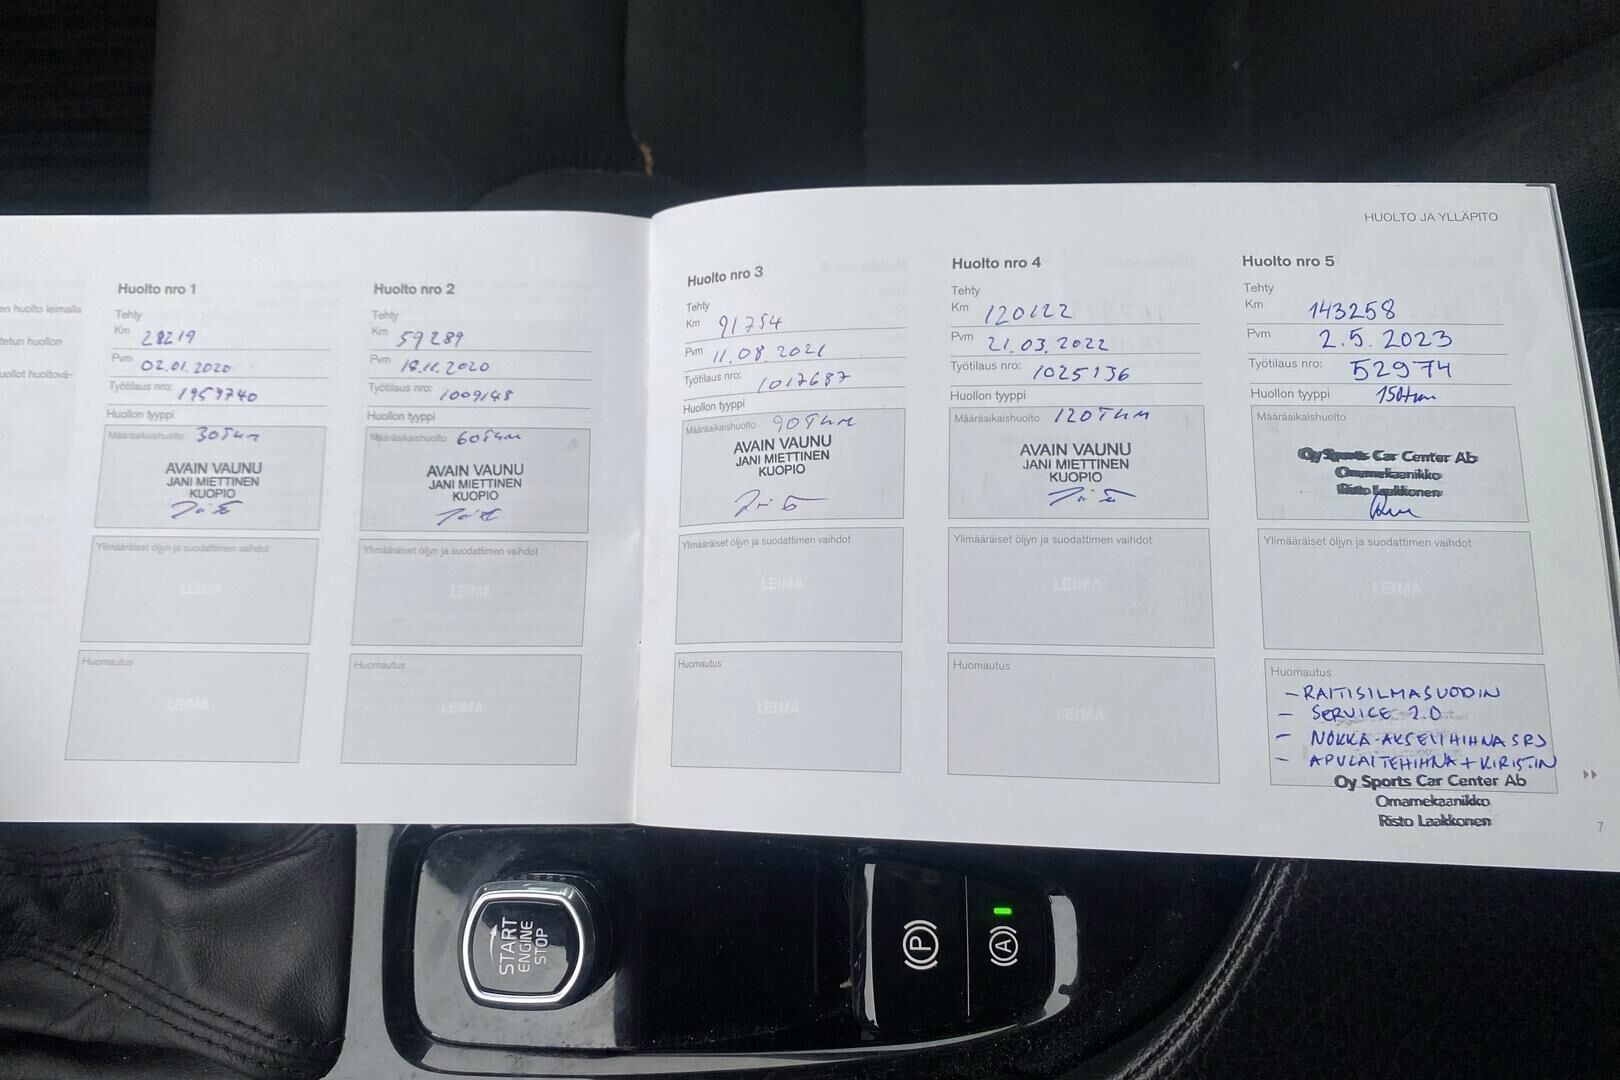 HUOLTO JA YLLÄPITO
en huolto leimalla
tetun huollon
uollot huoltovä-
Huolto nro 1
Tehty
Km 28219
Pvm 02.01.2020
Työtilaus nro: 1957740
Huollon tyyppi
Määräaikaishuolto 30Tkm
AVAIN VAUNU
JANI MIETTINEN
KUOPIO
Ylimääräiset öljyn ja suodattimen vaihdot
LEIMA
Huomautus
LEIMA
Huolto nro 2
Tehty
Km 59289
Pvm 18.11.2020
Työtilaus nro: 1009148
Huollon tyyppi
Määräaikaishuolto 60Tkm
AVAIN VAUNU
JANI MIETTINEN
KUOPIO
Ylimääräiset öljyn ja suodattimen vaihdot
LEIMA
Huomautus
LEIMA
Huolto nro 3
Tehty
Km 91754
Pvm 11.08.2021
Työtilaus nro: 1017687
Huollon tyyppi
Määräaikaishuolto 90Tkm
AVAIN VAUNU
JANI MIETTINEN
KUOPIO
Ylimääräiset öljyn ja suodattimen vaihdot
LEIMA
Huomautus
LEIMA
Huolto nro 4
Tehty
Km 120122
Pvm 21.03.2022
Työtilaus nro: 1025136
Huollon tyyppi
Määräaikaishuolto 120Tkm
AVAIN VAUNU
JANI MIETTINEN
KUOPIO
Ylimääräiset öljyn ja suodattimen vaihdot
LEIMA
Huomautus
LEIMA
Huolto nro 5
Tehty
Km 143258
Pvm 2.5.2023
Työtilaus nro: 52974
Huollon tyyppi 150tkm
Määräaikaishuolto
Oy Sports Car Center Ab
Omamekaanikko
Risto Laukkonen
Ylimääräiset öljyn ja suodattimen vaihdot
LEIMA
Huomautus
- RAITISILMASUODIN
- SERVICE 2.0
- NOKKA-AKSELIHIHNA SRJ
- APULAITEHIHNA + KIRISTIN
Oy Sports Car Center Ab
Omamekaanikko
Risto Laukkonen
7
START
ENGINE
STOP
P
A